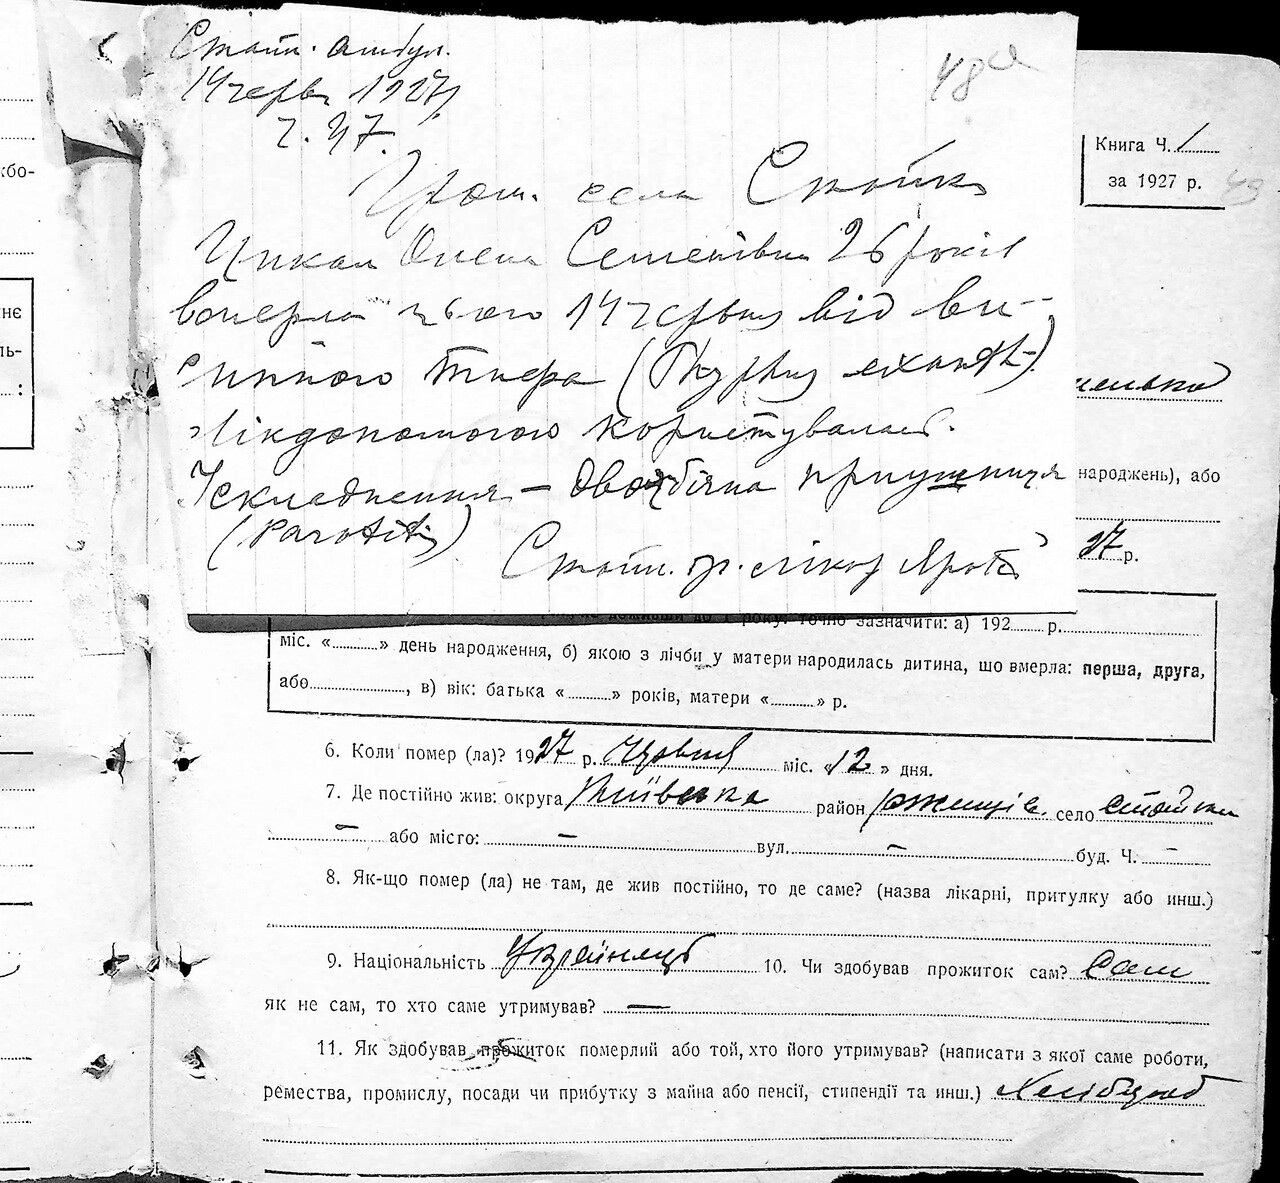 Стат. амбул.
14 черв. 1927 р.
Ч. 47.
48а
Гром. села Стайки
Цикал Олена Семенівна 26 років
вмерла цього 14 червня від ви-
сипного тифа (Typhus exanth.)
Лікдопомогою користувалась.
Ускладнення – двохбічна приушниця
(Parotitis)
лікар
Книга Ч. 1
за 1927 р.
49
народжень), або
27 р.
зазначити: а) 192 р.
міс. « » день народження, б) якою з лічби у матери народилась дитина, що вмерла: перша, друга,
або , в) вік: батька « » років, матери « » р.
6. Коли помер (ла)? 1927 р. Червня міс. «12» дня.
7. Де постійно жив: округа Київська район Ржищів. село Стайки
— або місто: — вул. — буд. Ч. —
8. Як-що помер (ла) не там, де жив постійно, то де саме? (назва лікарні, притулку або инш.)
9. Національність Українець 10. Чи здобував прожиток сам? Сам
як не сам, то хто саме утримував? —
11. Як здобував прожиток померлий або той, хто його утримував? (написати з якої саме роботи,
ремества, промислу, посади чи прибутку з майна або пенсії, стипендії та инш.) Хлібороб